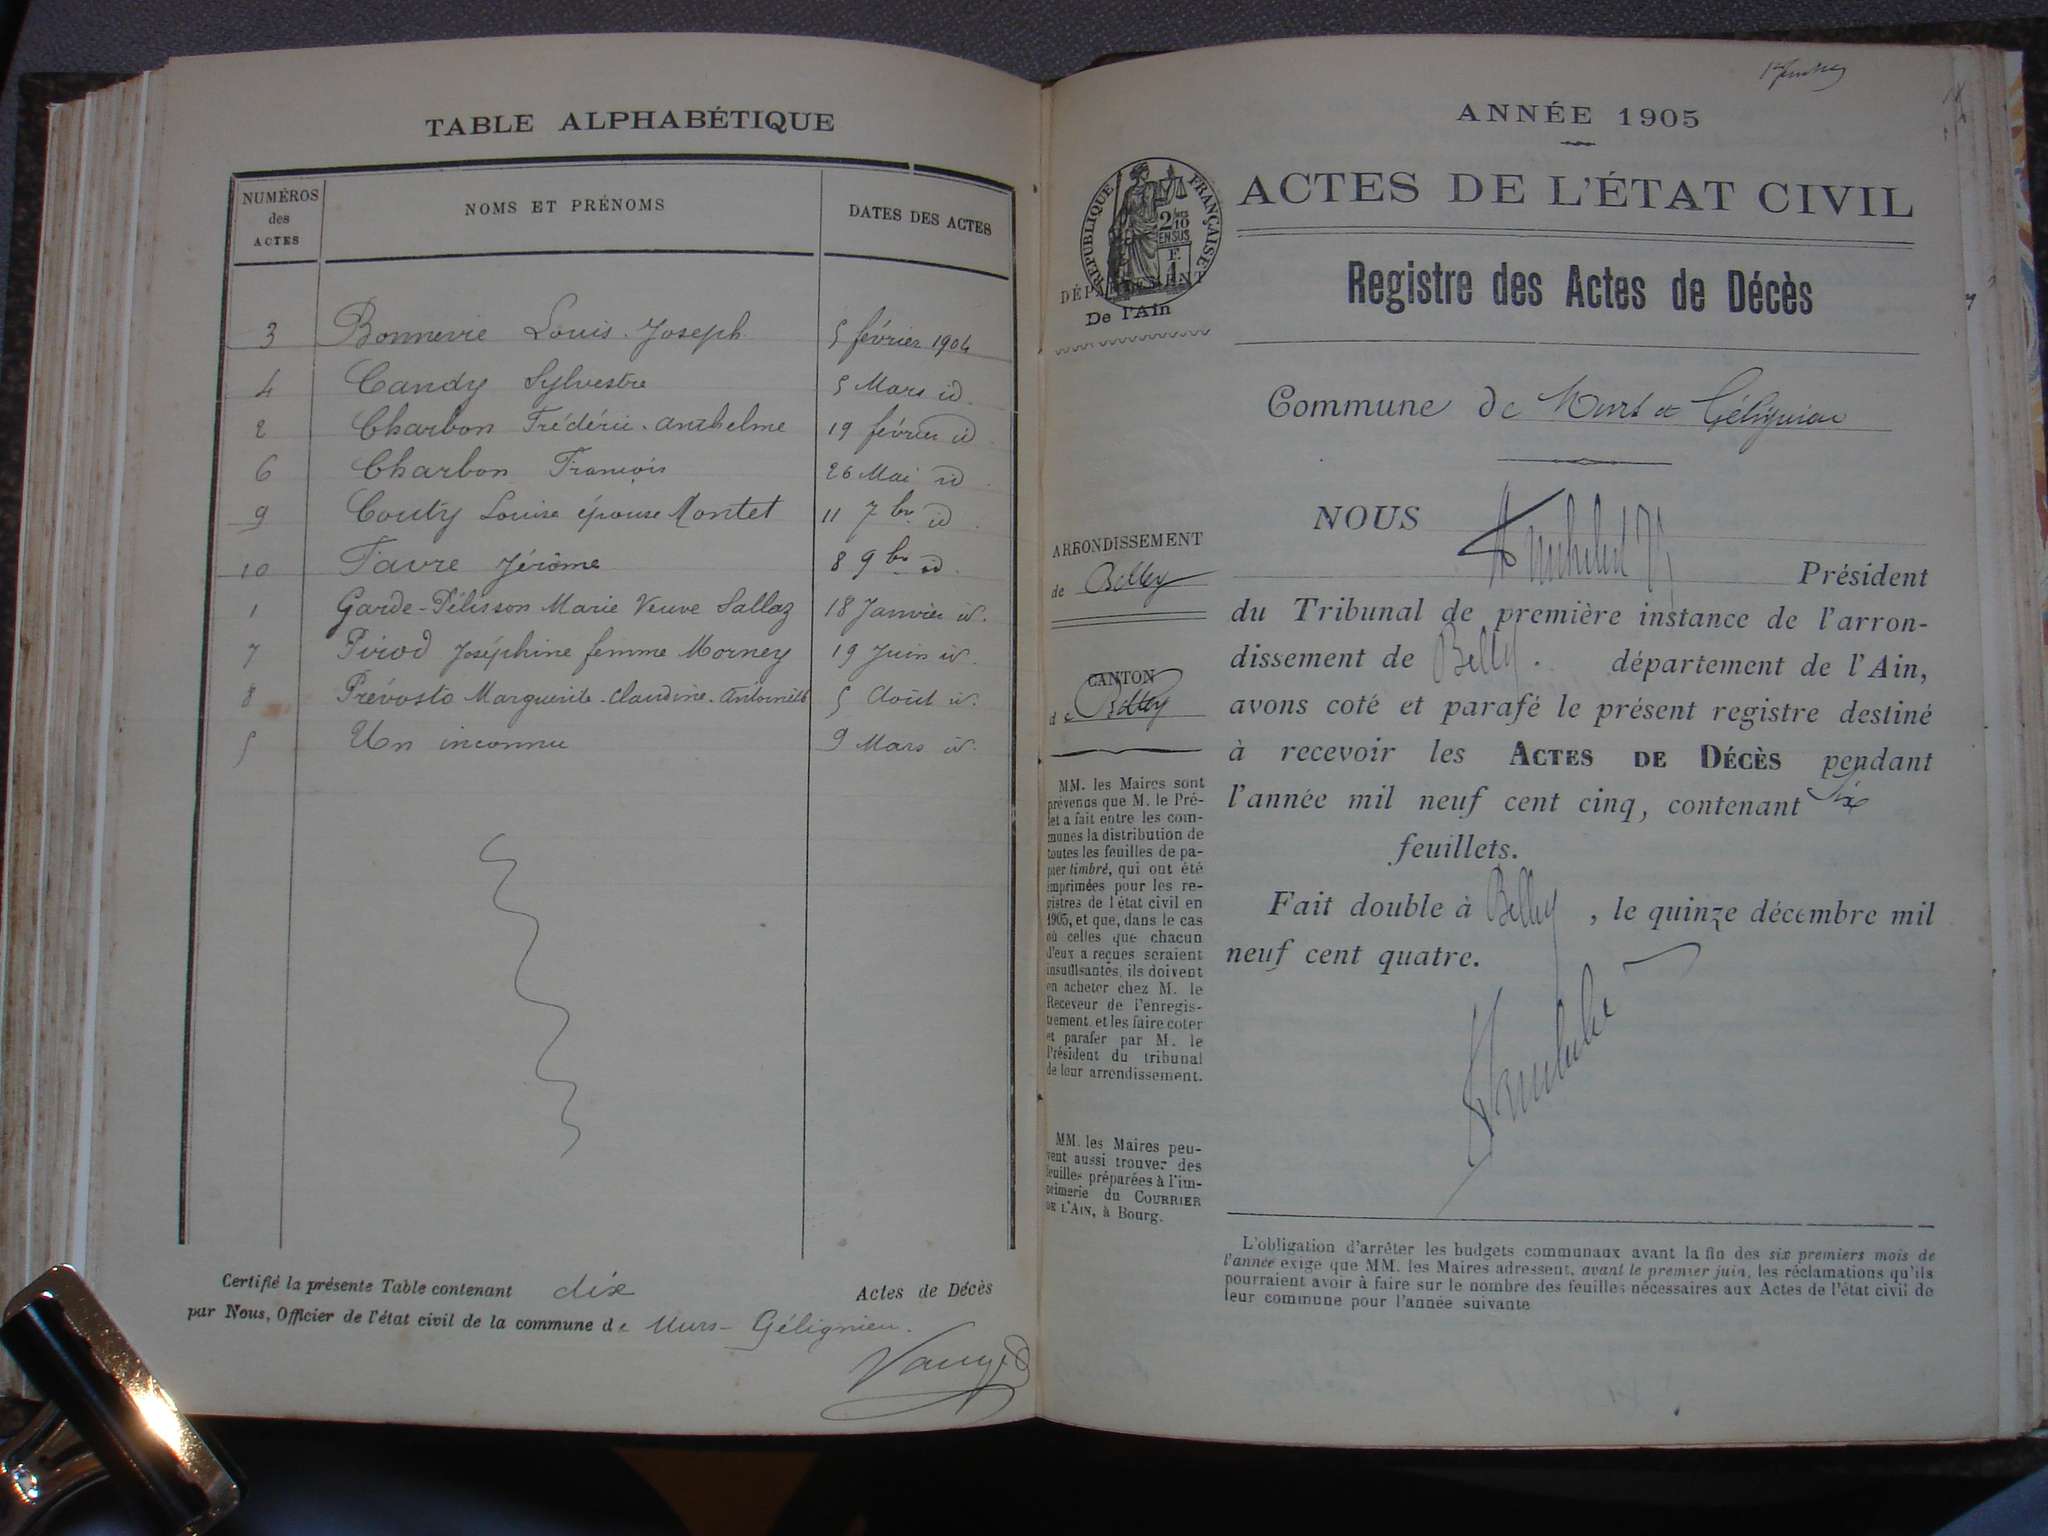 TABLE ALPHABÉTIQUE
NUMÉROS des ACTES NOMS ET PRÉNOMS DATES DES ACTES
3 Bonnevie Louis-Joseph 5 février 1904
4 Candy Sylvestre 5 Mars id
2 Charbon Frédéric-Anthelme 19 février id
6 Charbon François 26 Mai id
9 Couty Louise épouse Montet 11 7bre id
10 Favre Jérôme 8 9bre id
1 Garde-Pélisson Marie Veuve Sallaz 18 Janvier id.
7 Piriod Joséphine femme Morney 19 Juin id.
8 Prévosto Marguerite-Claudine-Antoinette 5 Août id.
5 Un inconnu 9 Mars id.
Certifié la présente Table contenant dix Actes de Décès
par Nous, Officier de l'état civil de la commune de Murs-Gélignieu.
ANNÉE 1905
RÉPUBLIQUE FRANÇAISE
2/10
EN SUS
F.
1
DÉPARTEMENT
De l'Ain
ACTES DE L'ÉTAT CIVIL
Registre des Actes de Décès
Commune de Murs et Gélignieu
ARRONDISSEMENT
de Belley
CANTON
de Belley
MM. les Maires sont
prévenus que M. le Pré-
fet a fait entre les com-
munes la distribution de
toutes les feuilles de pa-
pier timbré, qui ont été
imprimées pour les re-
gistres de l'état civil en
1905, et que, dans le cas
où celles que chacun
d'eux a reçues seraient
insuffisantes, ils doivent
en acheter chez M. le
Receveur de l'enregis-
trement et les faire coter
et parafer par M. le
Président du tribunal
de leur arrondissement.
MM. les Maires peu-
vent aussi trouver des
feuilles préparées à l'im-
primerie du COURRIER
DE L'AIN, à Bourg.
NOUS
Président
du Tribunal de première instance de l'arron-
dissement de Belley. département de l'Ain,
avons coté et parafé le présent registre destiné
à recevoir les ACTES DE DÉCÈS pendant
l'année mil neuf cent cinq, contenant six
feuillets.
Fait double à Belley, le quinze décembre mil
neuf cent quatre.
L'obligation d'arrêter les budgets communaux avant la fin des six premiers mois de
l'année exige que MM. les Maires adressent, avant le premier juin, les réclamations qu'ils
pourraient avoir à faire sur le nombre des feuilles nécessaires aux Actes de l'état civil de
leur commune pour l'année suivante